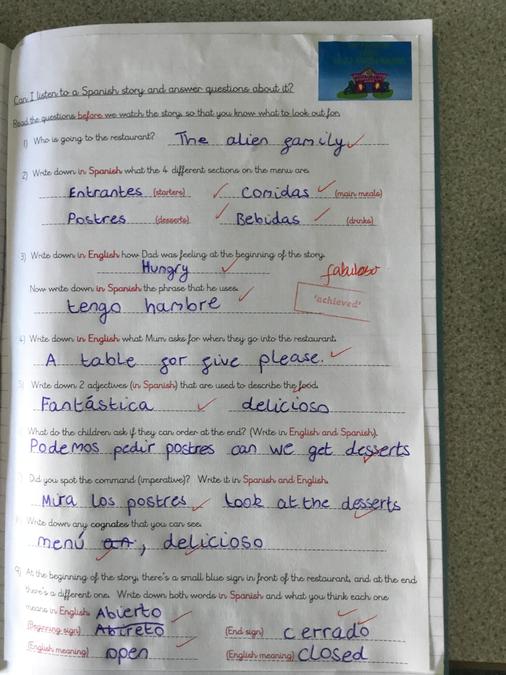 Can I listen to a Spanish story and answer questions about it?
Read the questions before we watch the story, so that you know what to look out for.
1) Who is going to the restaurant? The alien family
2) Write down in Spanish what the 4 different sections on the menu are.
Entrantes (starters) Comidas (main meals)
Postres (desserts) Bebidas (drinks)
3) Write down in English how Dad was feeling at the beginning of the story.
Hungry
fabuloso
Now write down in Spanish the phrase that he uses.
'achieved'
tengo hambre
4) Write down in English what Mum asks for when they go into the restaurant.
A table for five please.
5) Write down 2 adjectives (in Spanish) that are used to describe the food.
Fantástica delicioso
What do the children ask if they can order at the end? (Write in English and Spanish).
Podemos pedir postres can we get desserts
Did you spot the command (imperative)? Write it in Spanish and English.
Mira los postres Look at the desserts
Write down any cognates that you can see.
menú, delicioso
9) At the beginning of the story, there's a small blue sign in front of the restaurant, and at the end
there's a different one. Write down both words in Spanish and what you think each one
means in English. Abierto
(Beginning sign) Abireto (End sign) cerrado
(English meaning) open (English meaning) closed